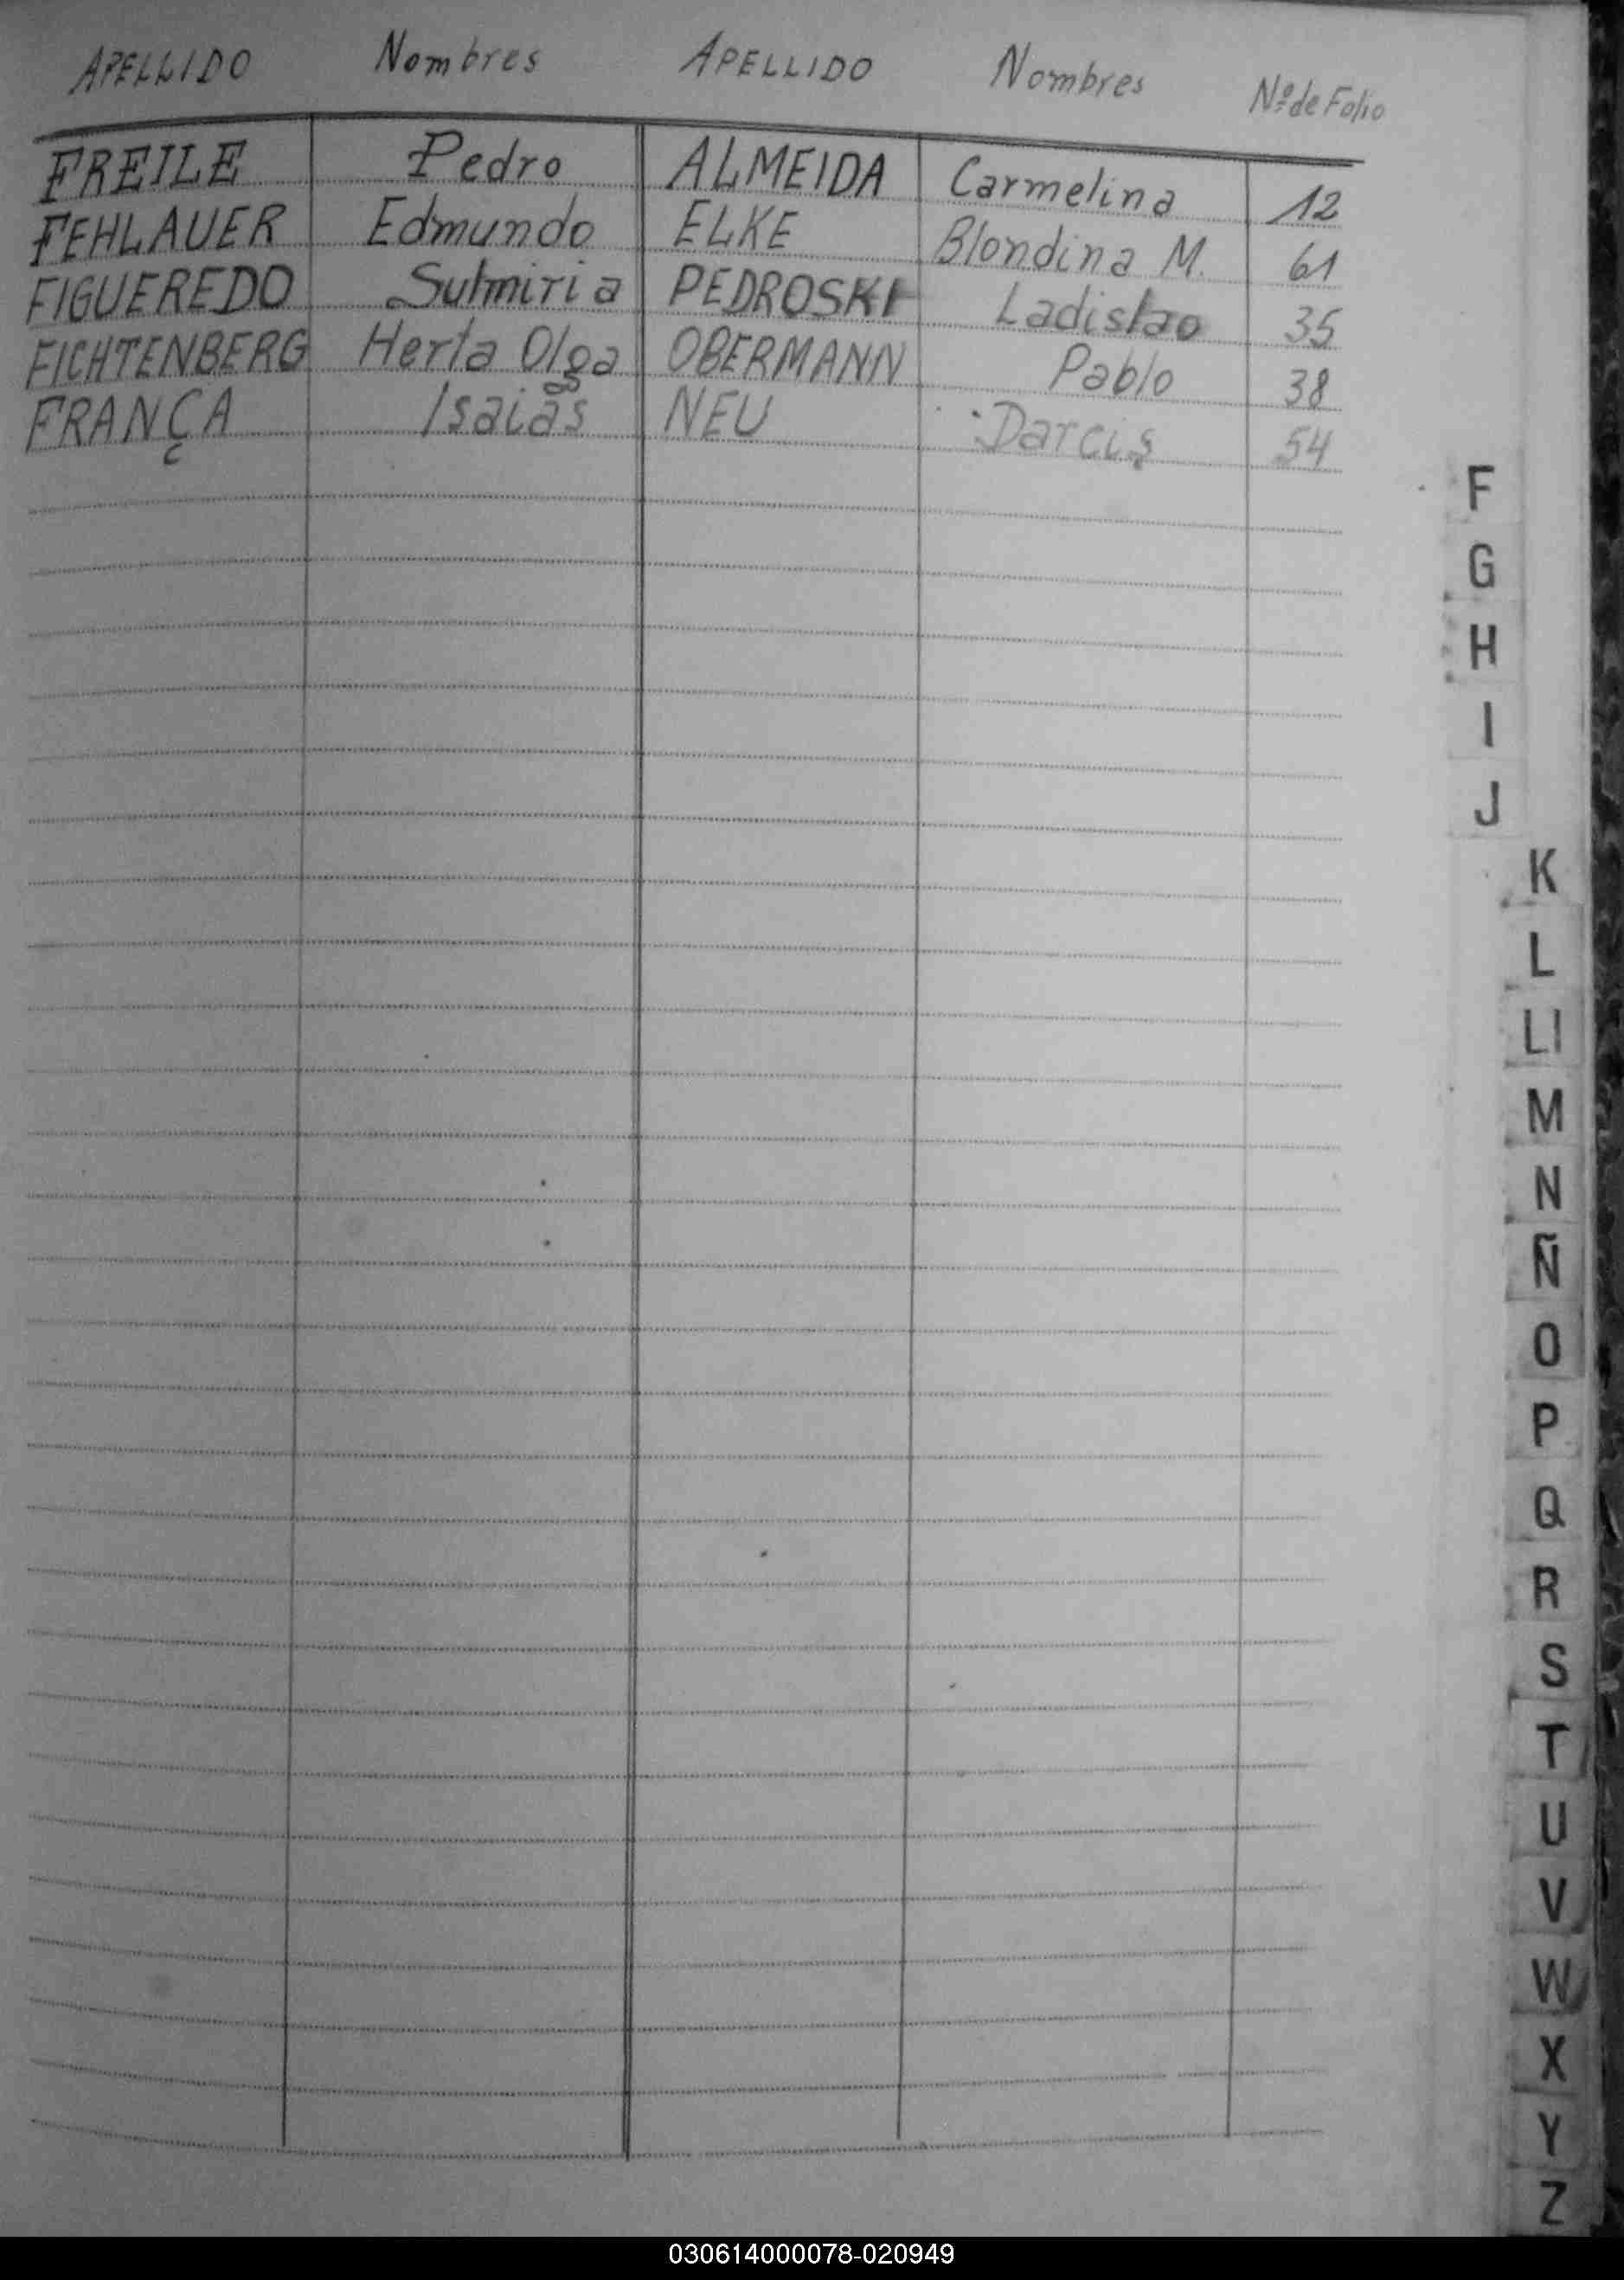 APELLIDO Nombres APELLIDO Nombres Nº de Folio
FREILE Pedro ALMEIDA Carmelina 12
FEHLAUER Edmundo ELKE Blondina M. 61
FIGUEREDO Sulmiria PEDROSKI Ladislao 35
FICHTENBERG Herta Olga OBERMANN Pablo 38
FRANÇA Isaias NEU Darcis 54
F
G
H
I
J
K
L
Ll
M
N
Ñ
O
P
Q
R
S
T
U
V
W
X
Y
Z
030614000078-020949